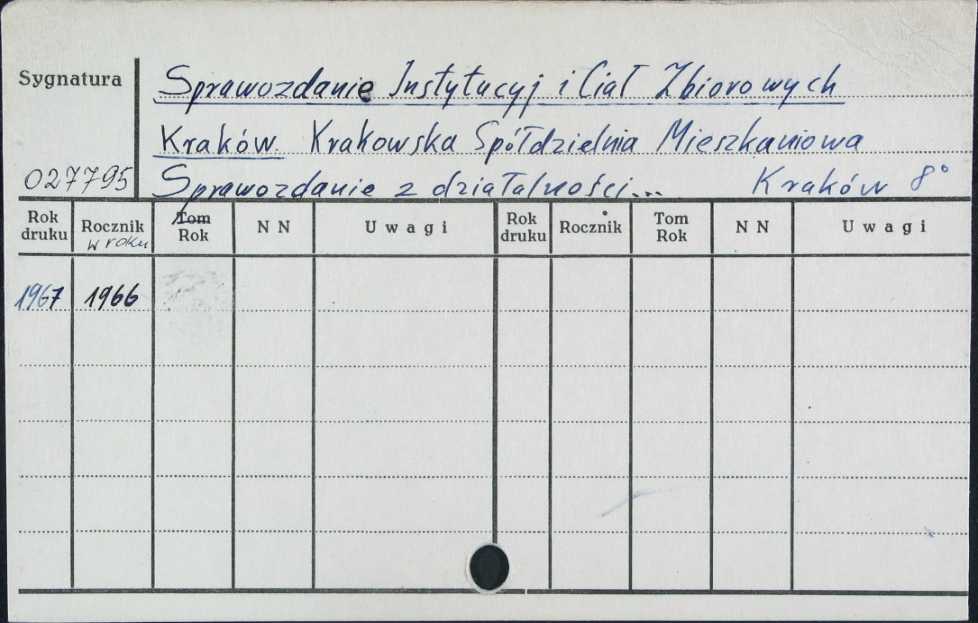 Sygnatura
Sprawozdanie Instytucyj i Ciał Zbiorowych
Kraków Krakowska Spółdzielnia Mieszkaniowa
027795
Sprawozdanie z działalności... Kraków 8°
Rok druku
Rocznik w roku
Tom Rok
N N
Uwagi
Rok druku
Rocznik
Tom Rok
N N
Uwagi
1967 1966